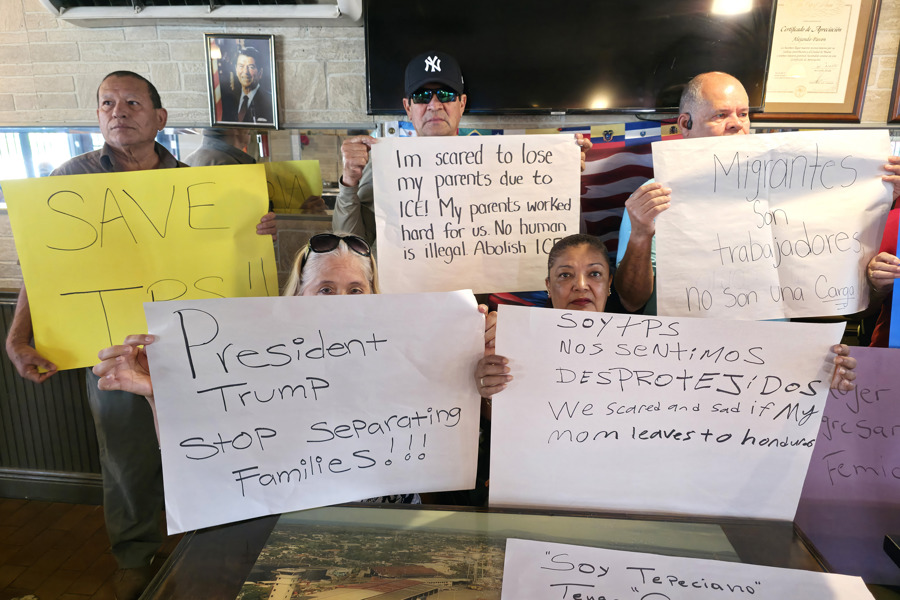 Certificado de Apreciación
Alejandro
NY
SAVE
TPS"
Im scared to lose
my parents due to
ICE! My parents worked
hard for us. No human
is illegal. Abolish ICE
Migrantes
Son
trabajadores
no son una Carga
President
Trump
Stop Separating
Families!!!
Soy TPS
NOS SENTIMOS
DESPROTEJIDOS
We scared and sad if My
mom leaves to honduras
"Soy Tepeciano"